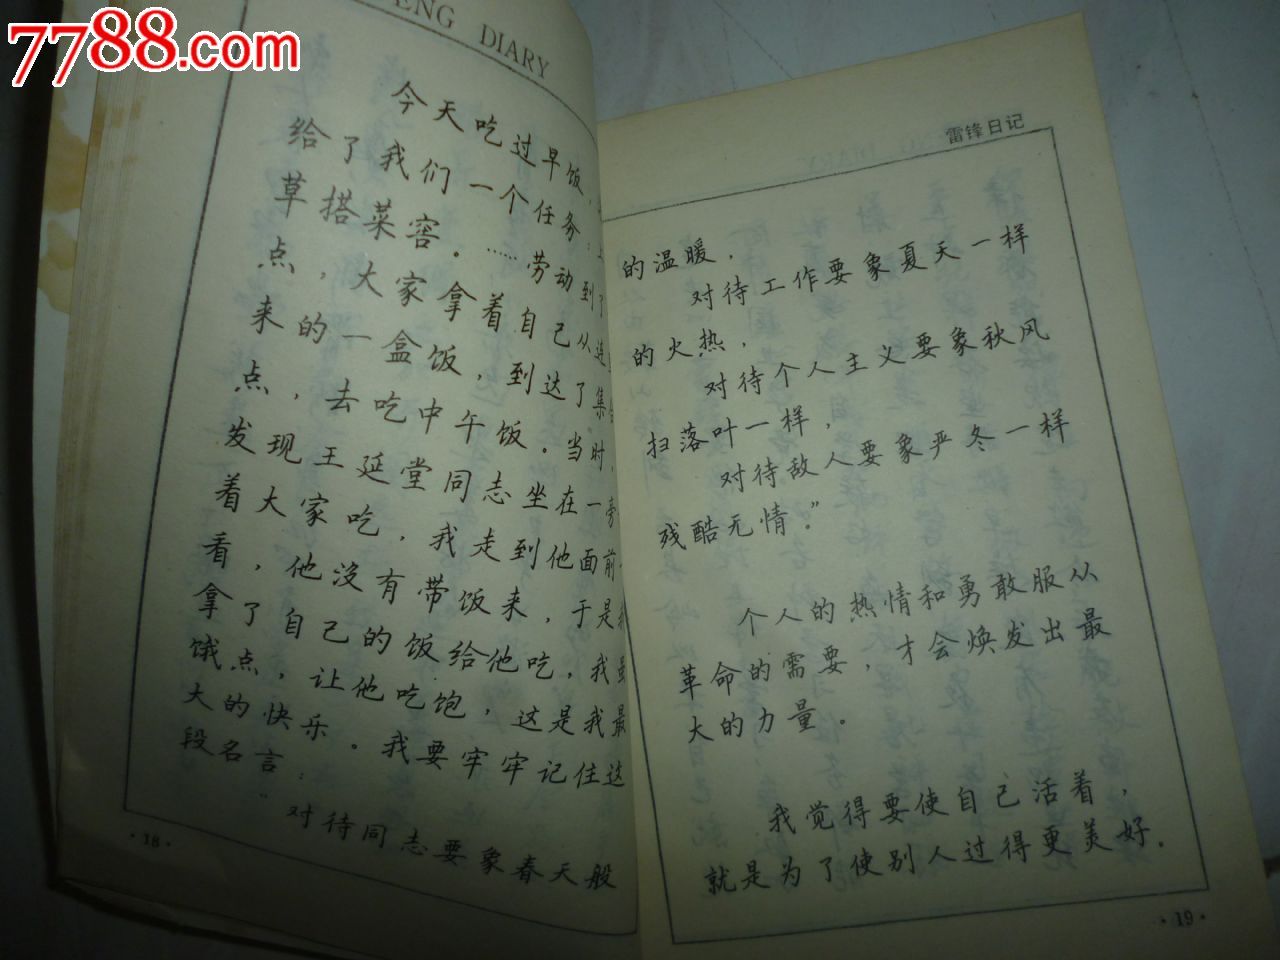 7788.com
ENG DIARY
今天吃过早饭，
给了我们一个任务：上
草搭菜窖。……劳动到了
点，大家拿着自己从连
来的一盒饭，到达了集
点，去吃中午饭。当时，
发现王延堂同志坐在一旁
着大家吃，我走到他面前
看，他没有带饭来，于是
拿了自己的饭给他吃，我虽
饿点，让他吃饱，这是我最
大的快乐。我要牢牢记住这
段名言：
“对待同志要象春天般
·18·
雷锋日记
的温暖，
对待工作要象夏天一样
的火热，
对待个人主义要象秋风
扫落叶一样，
对待敌人要象严冬一样
残酷无情。”
个人的热情和勇敢服从
革命的需要，才会焕发出最
大的力量。
我觉得要使自己活着，
就是为了使别人过得更美好。
·19·